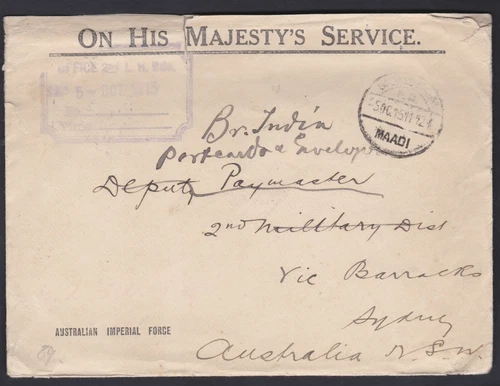 ON HIS MAJESTY'S SERVICE.
OFFICE 2nd L. H. Bde.
5 - OCT 1915
MAADI
Br. India
Postcards & Envelopes
Deputy Paymaster
2nd Military Dist
Vic Barracks
Sydney
AUSTRALIAN IMPERIAL FORCE
Australia N.S.W.
89